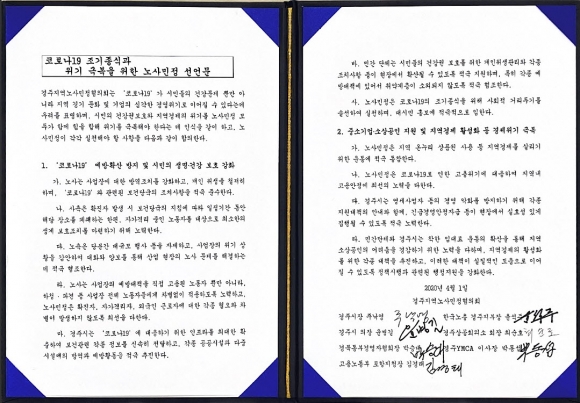 코로나19 조기종식과
위기 극복을 위한 노사민정 선언문
경주지역노사민정협의회는 '코로나19'가 시민들의 건강문제 뿐만 아
니라 지역 경기 둔화 및 기업의 심각한 경영위기로 이어질 수 있다는데
우려를 표명하며, 시민의 건강권보호와 지역경제의 위기를 노사민정 모
두가 함께 힘을 합해 위기를 극복해야 한다는 데 인식을 같이 하고, 노
사민정이 각각 실천해야 할 사항을 다음과 같이 합의한다.
1. '코로나19' 예방확산 방지 및 시민의 생명·건강 보호 강화
가. 노사는 사업장에 대한 방역조치를 강화하고, 개인 위생을 철저히
하며, '코로나19'와 관련된 보건당국의 조치사항을 적극 준수한다.
나. 사측은 확진자 발생 시 보건당국의 지침에 따라 일정기간 동안
해당 장소를 폐쇄하는 한편, 자가격리 중인 노동자를 대상으로 최소한의
생계 보호조치를 마련하기 위해 노력한다.
다. 노측은 당분간 대규모 행사 등을 자제하고, 사업장의 위기 상황
을 감안하여 대화와 양보를 통해 산업 현장의 노사 문제를 해결하는
데 적극 협조한다.
라. 노사는 사업장의 예방대책을 직접 고용된 노동자 뿐만 아니라,
하청·파견 등 사업장 전체 노동자들에게 차별없이 적용하도록 노력하고,
노사민정은 확진자, 자가격리자, 외국인 근로자에 대한 각종 혐오와 차
별이 발생하지 않도록 최선을 다한다.
마. 경주시는 '코로나19'에 대응하기 위한 인프라를 최대한 확
충하여 보건관련 각종 정보를 신속히 전달하고, 각종 공공시설과 다중
시설에의 방역과 예방활동을 적극 추진한다.
바. 민간 단체는 시민들의 건강권 보호를 위한 개인위생관리와 각종
조치사항 등이 현장에서 확산될 수 있도록 적극 지원하며, 특히 각종 예
방대책에 있어서 취약계층이 소외되지 않도록 적극 협조한다.
사. 노사민정은 코로나19의 조기종식을 위해 사회적 거리두기를
솔선하여 실천하며, 대시민 홍보에 적극적으로 임한다.
2. 중소기업·소상공인 지원 및 지역경제 활성화 등 경제위기 극복
가. 노사민정은 지역 온누리 상품권 사용 등 지역경제를 살리기
위한 운동에 적극 동참한다.
나. 노사민정은 코로나19로 인한 고용위기에 대응하여 지역내
고용안정에 최선의 노력을 다한다.
다. 경주시는 영세사업자 등의 경영 악화를 방지하기 위해 각종
지원대책의 안내와 함께, 긴급경영안정자금 등이 현장에서 실효성 있게
집행될 수 있도록 적극 노력한다.
라. 민간단체와 경주시는 착한 임대료 운동의 확산을 통해 지역
소상공인의 어려움을 경감하기 위한 노력을 다하며, 지역경제의 활성화
를 위한 각종 대책을 추진하고, 이러한 대책이 실질적인 도움으로 이어
질 수 있도록 정책시행과 관련된 행정지원을 강화한다.
2020년 4월 1일
경주지역노사민정협의회
경주시장 주낙영 한국노총 경주지부장
경주시 의장 윤병길 경주상공회의소 회장 최순호
경북동부경영자협회장 경주YMCA 이사장
고용노동부 포항지청장 김경태